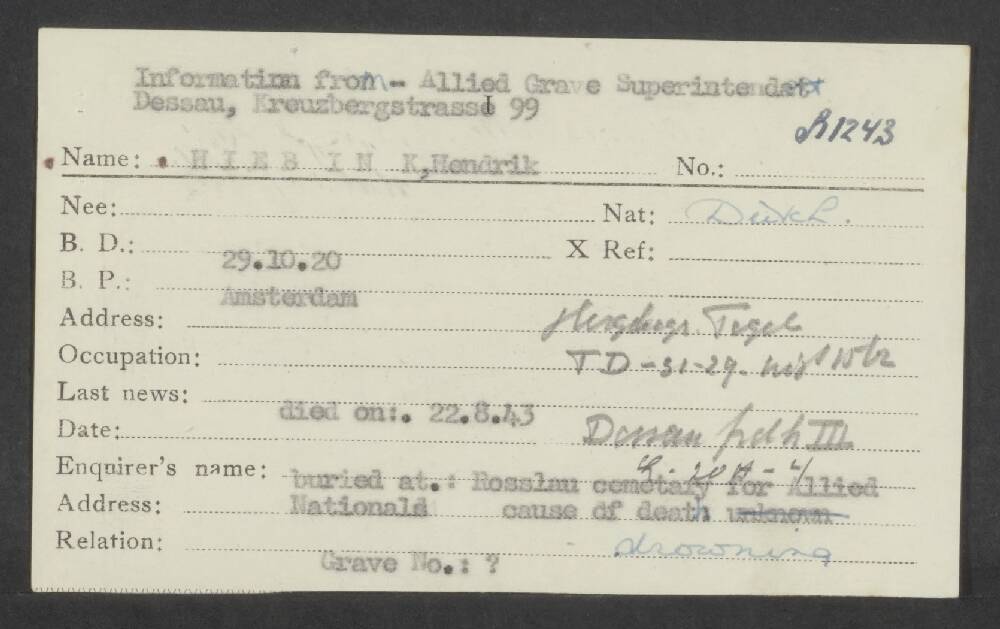 Information from - Allied Grave Superintendet
Dessau, Kreuzbergstrasse 99
R1243
Name: HIEB IN K, Hendrik No.:
Nee: Nat: Dutch.
B. D.: 29.10.20 X Ref:
B. P.: Amsterdam
Address: Tegel
Occupation: TD-31-29.
Last news:
Date: died on:. 22.8.43 Dessau III
Enquirer's name: buried at.: Rosslau cemetary for Allied
Address: Nationals cause of death unknown
Relation: drowning
Grave No.: ?